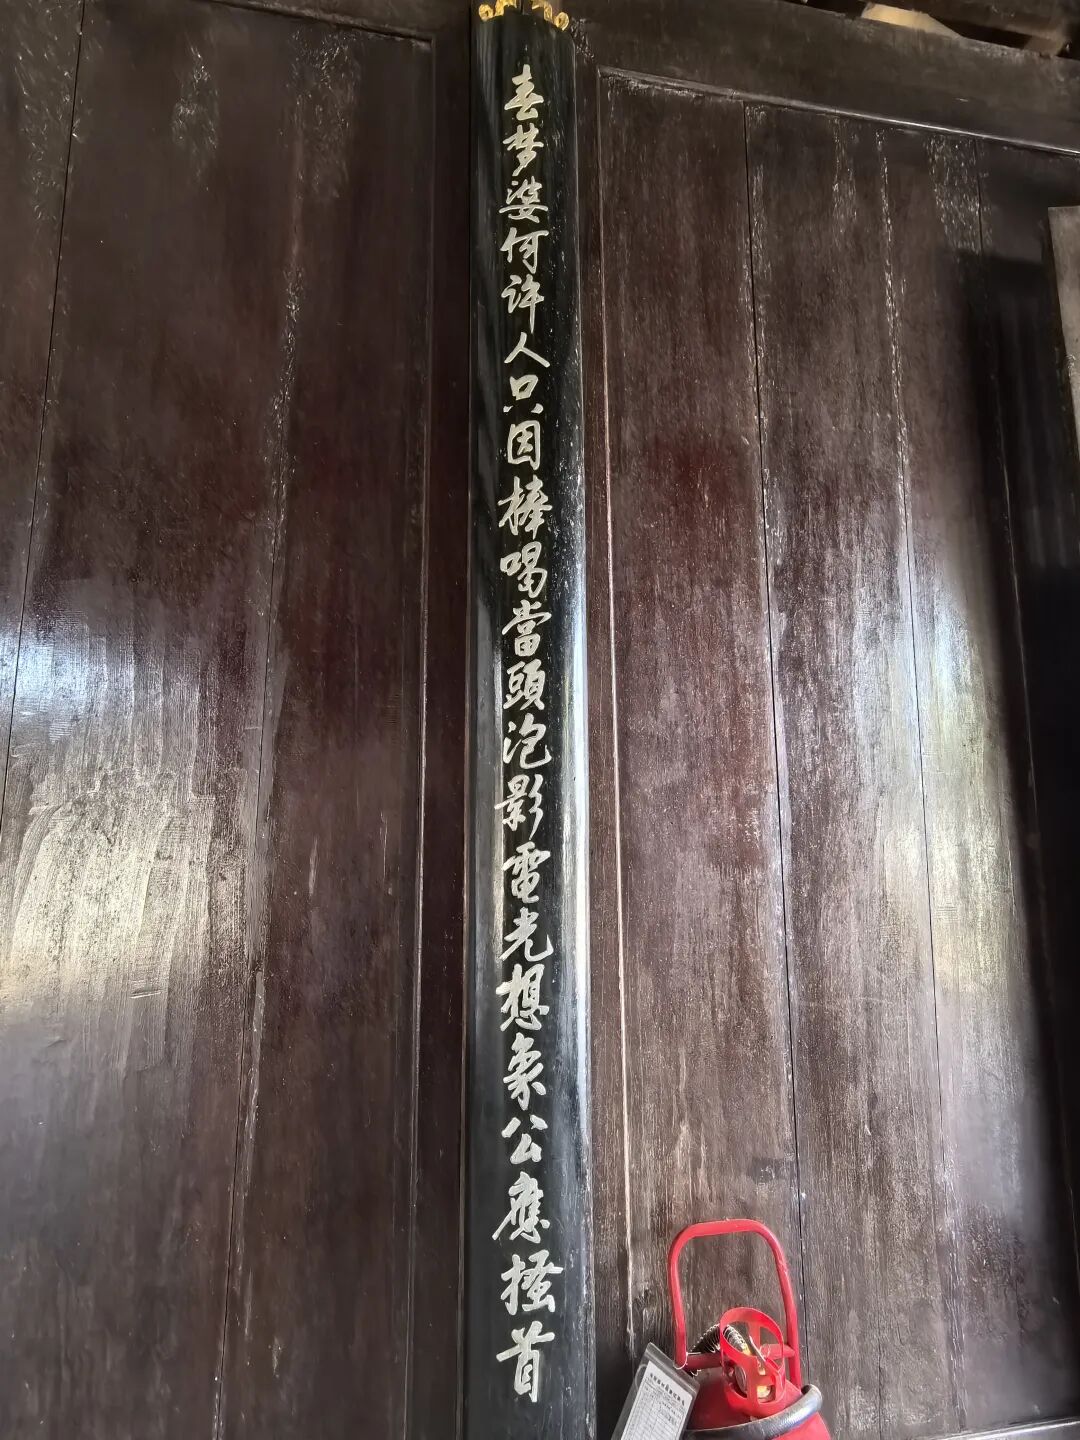 春梦婆何许人只因棒喝當頭泡影電光想象公應搔首